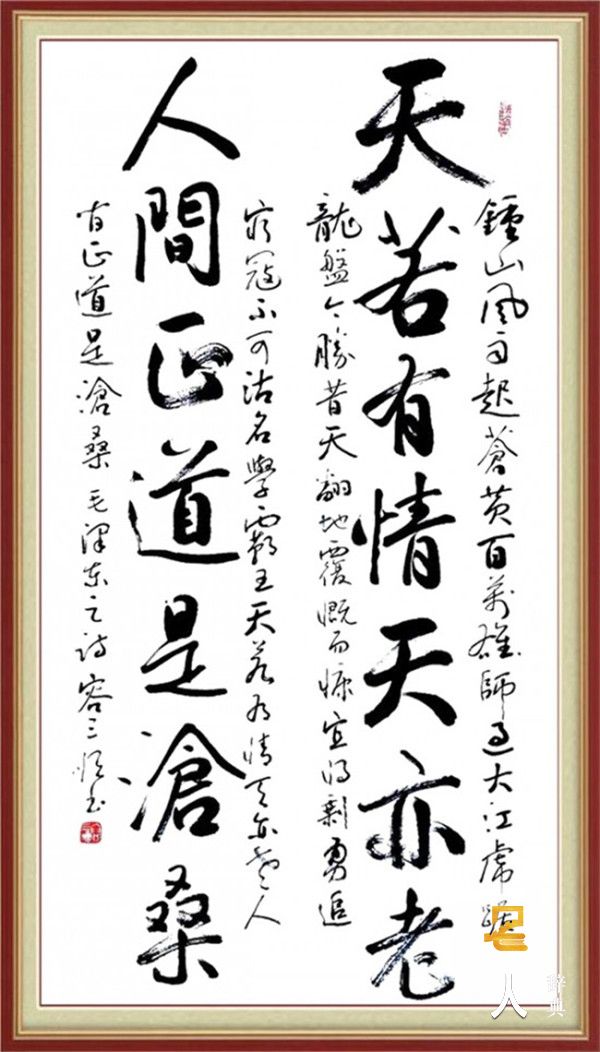 鍾山風雨起蒼黄百萬雄師過大江虎踞
天若有情天亦老
龍盤今勝昔天翻地覆慨而慷宜将剩勇追
窮寇不可沽名學霸王天若有情天亦老人
人間正道是滄桑
间正道是滄桑 毛澤东之诗 容三
人
辞典